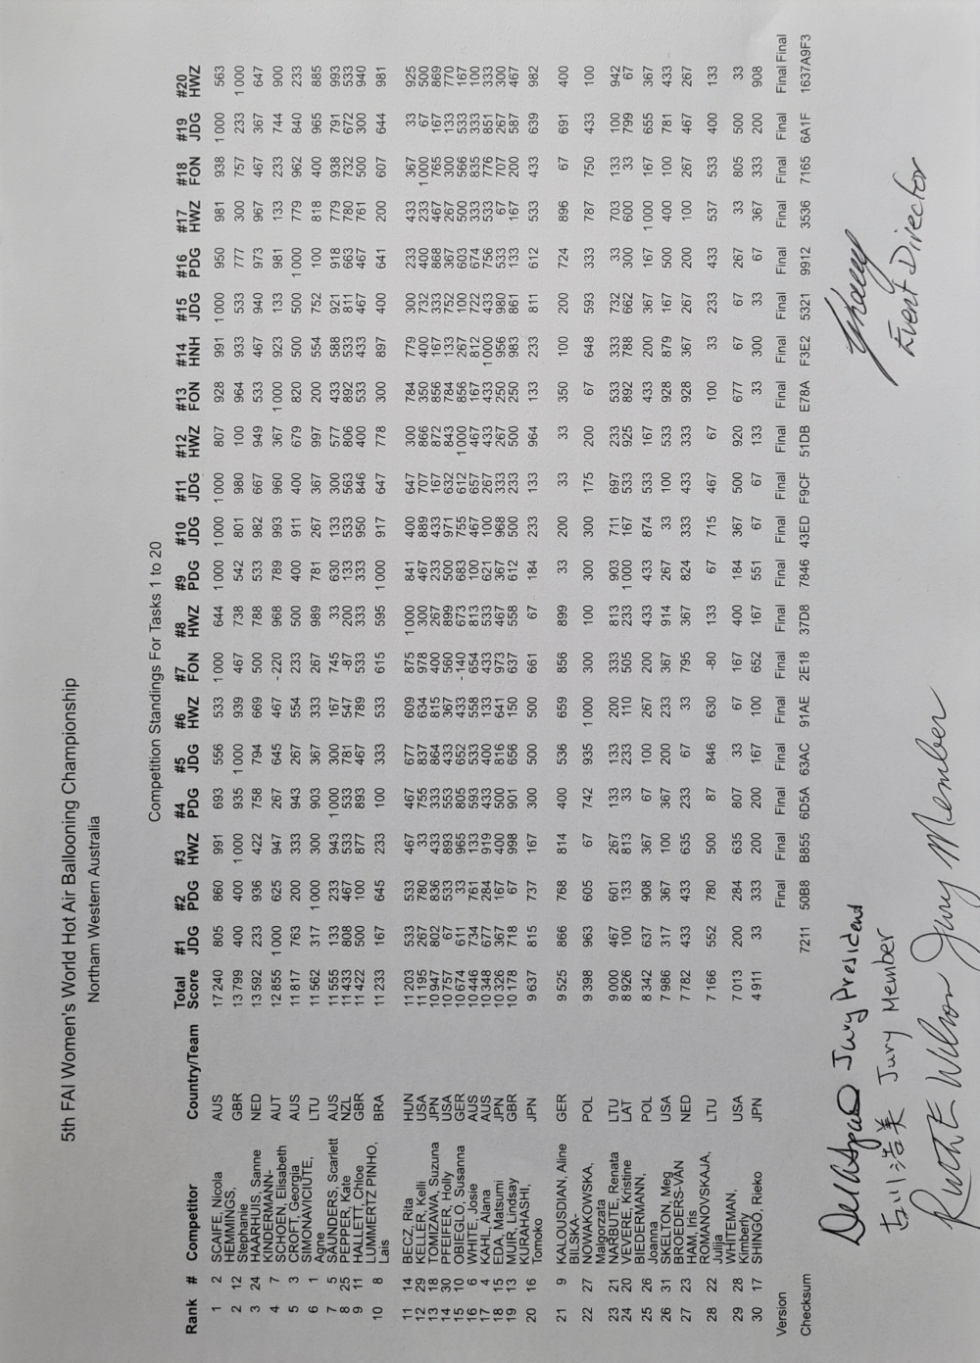 5th FAI Women's World Hot Air Ballooning Championship
Northam Western Australia
Competition Standings For Tasks 1 to 20
Rank # Competitor Country/Team Total Score #1 JDG #2 PDG #3 HWZ #4 PDG #5 JDG #6 HWZ #7 FON #8 HWZ #9 PDG #10 JDG #11 JDG #12 HWZ #13 FON #14 HNH #15 JDG #16 PDG #17 HWZ #18 FON #19 JDG #20 HWZ
1 2 SCAIFE, Nicola AUS 17 240 805 860 991 693 556 533 1 000 644 1 000 1 000 1 000 807 928 991 1 000 950 981 938 1 000 563
2 12 HEMMINGS, Stephanie GBR 13 799 400 400 1 000 935 1 000 939 467 738 542 801 980 100 964 933 533 777 300 757 233 1 000
3 24 HAARHUIS, Sanne NED 13 592 233 936 422 758 794 669 500 788 533 982 667 949 533 467 940 973 967 467 367 647
4 7 KINDERMANN-SCHOEN, Elisabeth AUT 12 855 1 000 625 947 267 645 467 -220 968 789 993 960 367 1 000 923 133 981 133 233 744 900
5 3 CROFT, Georgia AUS 11 817 763 200 333 943 267 554 233 500 400 911 400 679 820 500 500 1 000 779 962 840 233
6 1 SIMONAVICIUTE, Agne LTU 11 562 317 1 000 300 903 367 333 267 989 781 267 367 997 200 554 752 100 818 400 965 885
7 5 SAUNDERS, Scarlett AUS 11 555 133 233 943 1 000 300 167 745 33 630 133 300 577 433 588 921 918 779 938 791 993
8 25 PEPPER, Kate NZL 11 433 808 467 533 533 781 547 -87 200 133 533 563 806 892 533 811 663 780 732 672 533
9 11 HALLETT, Chloe GBR 11 422 500 100 877 893 467 789 533 333 333 950 846 400 533 433 467 467 761 500 300 940
10 8 LUMMERTZ PINHO, Lais BRA 11 233 167 645 233 100 333 533 615 595 1 000 917 647 778 300 897 400 641 200 607 644 981
11 14 BECZ, Rita HUN 11 203 533 533 467 467 677 609 875 1 000 841 400 647 300 784 779 300 233 433 367 33 925
12 29 KELLER, Kelli USA 11 195 267 780 33 755 837 634 978 300 467 889 707 866 350 400 732 400 233 1 000 67 500
13 18 TOMIZAWA, Suzuna JPN 10 947 802 836 433 333 864 815 400 267 233 433 167 872 856 167 333 868 467 765 167 869
14 30 PFEIFER, Holly USA 10 757 67 533 893 553 433 367 560 899 500 971 632 843 784 133 752 367 267 300 133 770
15 10 OBIEGLO, Susanna GER 10 674 611 33 965 805 652 433 -140 673 683 755 612 1 000 856 267 100 603 500 566 533 167
16 6 WHITE, Josie AUS 10 446 734 761 133 593 533 558 654 813 100 467 657 467 167 812 722 674 333 835 333 100
17 4 KAHL, Alana AUS 10 348 677 284 919 433 400 133 433 533 621 100 267 433 433 1 000 433 756 533 776 851 333
18 15 EDA, Matsumi JPN 10 326 367 167 400 500 816 641 973 467 367 968 333 267 250 956 980 533 67 707 267 300
19 13 MUIR, Lindsay GBR 10 178 718 67 998 901 656 150 637 558 612 500 233 500 250 983 861 133 167 200 587 467
20 16 KURAHASHI, Tomoko JPN 9 637 815 737 167 300 500 500 661 67 184 233 133 964 133 233 811 612 533 433 639 982
21 9 KALOUSDIAN, Aline GER 9 525 866 768 814 400 536 659 856 899 33 200 33 33 350 100 200 724 896 67 691 400
22 27 BILSKA-NOWAKOWSKA, Malgorzata POL 9 398 963 605 67 742 935 1 000 300 100 300 300 175 200 67 648 593 333 787 750 433 100
23 21 NARBUTE, Renata LTU 9 000 467 601 267 133 133 200 333 813 903 711 697 233 533 333 732 33 703 133 100 942
24 20 VEVERE, Kristine LAT 8 926 100 133 813 33 233 110 505 233 1 000 167 533 925 892 788 662 300 600 33 799 67
25 26 BIEDERMANN, Joanna POL 8 342 637 908 367 67 100 267 200 433 433 874 533 167 433 200 367 167 1 000 167 655 367
26 31 SKELTON, Meg USA 7 986 317 367 100 367 200 233 367 914 267 33 100 533 928 879 167 500 400 100 781 433
27 23 BROEDERS-VAN HAM, Iris NED 7 782 433 433 635 233 67 33 795 367 824 333 433 333 928 367 267 200 100 267 467 267
28 22 ROMANOVSKAJA, Julija LTU 7 166 552 780 500 87 846 630 -80 133 67 715 467 67 100 33 233 433 537 533 400 133
29 28 WHITEMAN, Kimberly USA 7 013 200 284 635 807 33 67 167 400 184 367 500 920 677 67 67 267 33 805 500 33
30 17 SHINGO, Rieko JPN 4 911 33 333 200 200 167 100 652 167 551 67 67 133 33 300 33 67 367 333 200 908
Version Final Final Final Final Final Final Final Final Final Final Final Final Final Final Final Final Final Final Final Final
Checksum 7211 50B8 B855 6D5A 63AC 91AE 2E18 37D8 7846 43ED F9CF 51DB E78A F3E2 5321 9912 3536 7165 6A1F 1637A9F3
Jury President
Jury Member
Ruth E Wilson Jury Member
Event Director